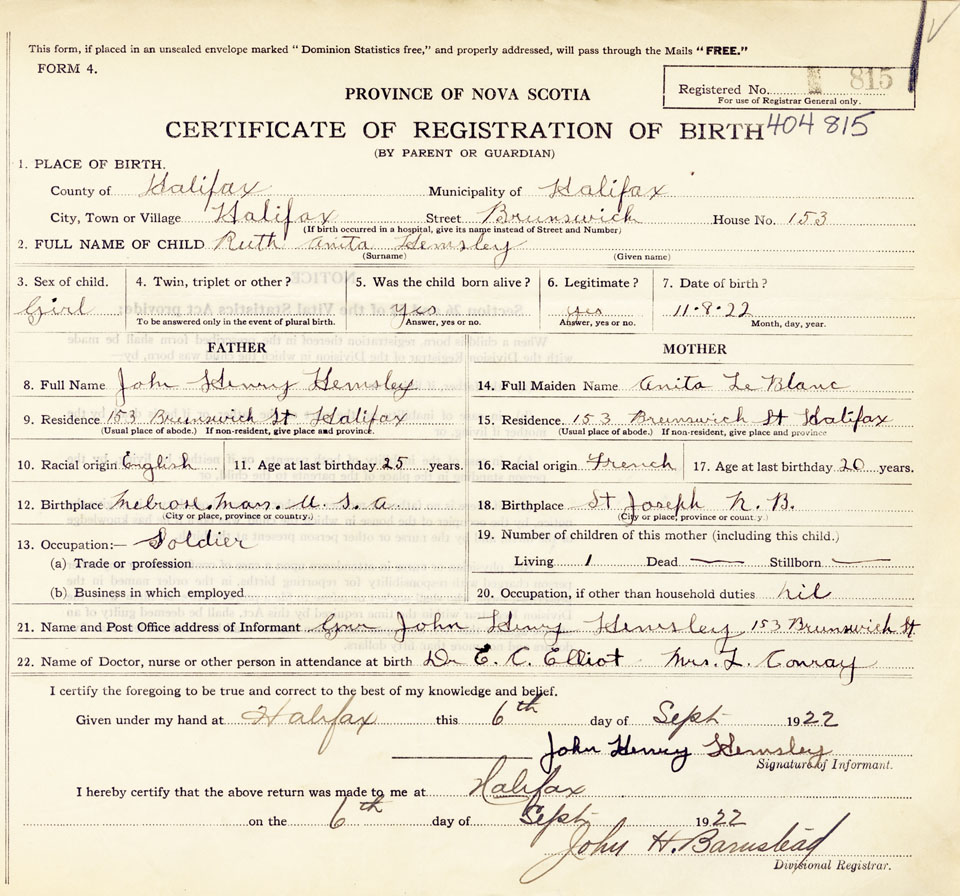 This form, if placed in an unsealed envelope marked "Dominion Statistics free," and properly addressed, will pass through the Mails "FREE."
FORM 4.
Registered No. 815
For use of Registrar General only.
PROVINCE OF NOVA SCOTIA
CERTIFICATE OF REGISTRATION OF BIRTH 404815
(BY PARENT OR GUARDIAN)
1. PLACE OF BIRTH.
County of Halifax Municipality of Halifax
City, Town or Village Halifax Street Brunswick House No. 153
(If birth occurred in a hospital, give its name instead of Street and Number)
2. FULL NAME OF CHILD Ruth Anita Hemsley
(Surname) (Given name)
3. Sex of child. 4. Twin, triplet or other? 5. Was the child born alive? 6. Legitimate? 7. Date of birth?
Girl yes yes 11·8·22
To be answered only in the event of plural birth. Answer, yes or no. Answer, yes or no. Month, day, year.
FATHER MOTHER
8. Full Name John Henry Hemsley 14. Full Maiden Name Anita Le Blanc
9. Residence 153 Brunswick St Halifax 15. Residence 153 Brunswick St Halifax
(Usual place of abode.) If non-resident, give place and province. (Usual place of abode.) If non-resident, give place and province
10. Racial origin English 11. Age at last birthday 25 years. 16. Racial origin French 17. Age at last birthday 20 years.
12. Birthplace Melrose. Mass. U. S. A. 18. Birthplace St Joseph N. B.
(City or place, province or country.) (City or place, province or country.)
13. Occupation:— Soldier 19. Number of children of this mother (including this child.)
(a) Trade or profession Living 1 Dead — Stillborn —
(b) Business in which employed 20. Occupation, if other than household duties nil
21. Name and Post Office address of Informant Gnr John Henry Hemsley 153 Brunswick St.
22. Name of Doctor, nurse or other person in attendance at birth Dr E. C. Elliot. Mrs. L. Conray
I certify the foregoing to be true and correct to the best of my knowledge and belief.
Given under my hand at Halifax this 6th day of Sept 1922
John Henry Hemsley
Signature of Informant.
I hereby certify that the above return was made to me at Halifax
on the 6th day of Sept 1922
John H. Barnstead
Divisional Registrar.